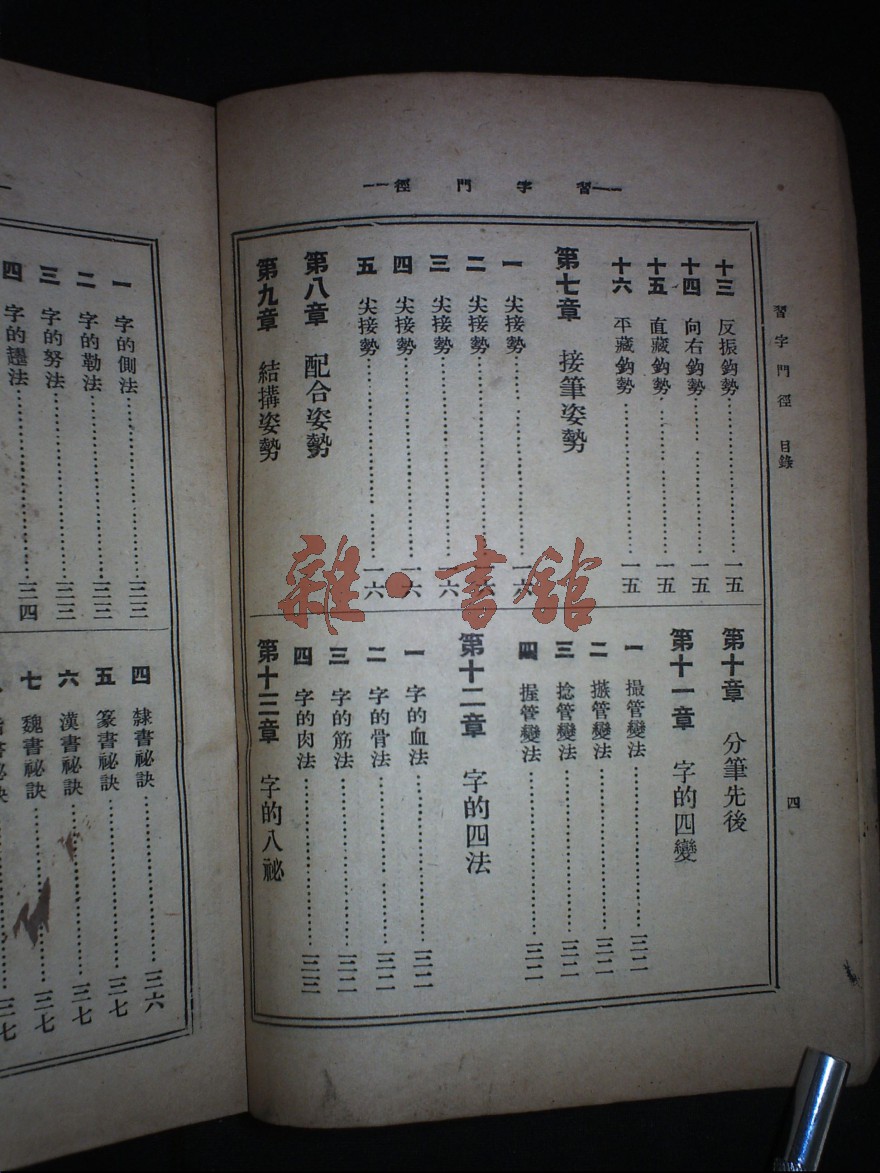 習字門徑
習字門徑 目錄
四
十三 反振鈎勢 一五
十四 向右鈎勢 一五
十五 直藏鈎勢 一五
十六 平藏鈎勢 一五
第七章 接筆姿勢
一 尖接勢 一六
二 尖接勢 一六
三 尖接勢 一六
四 尖接勢 一六
五 尖接勢 一六
第八章 配合姿勢
第九章 結搆姿勢
第十章 分筆先後
第十一章 字的四變
一 撮管變法 三二
二 搽管變法 三二
三 捻管變法 三二
四 握管變法 三二
第十二章 字的四法
一 字的血法 三二
二 字的骨法 三二
三 字的筋法 三二
四 字的肉法 三三
第十三章 字的八祕
一 字的側法 三三
二 字的勒法 三三
三 字的努法 三三
四 字的趯法 三四
四 隸書祕訣 三六
五 篆書祕訣 三七
六 漢書祕訣 三七
七 魏書祕訣 三七
書祕訣 三七
雜·書館